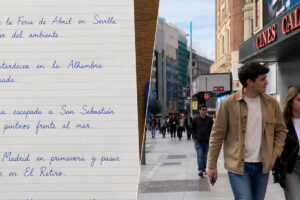 a la Feria de Abril en Sevilla
ar del ambiente.
atardecer en la Alhambra
nada.
na escapada a San Sebastián
pintxos frente al mar.
Madrid en primavera y pasar
e en El Retiro.
CINES CAL